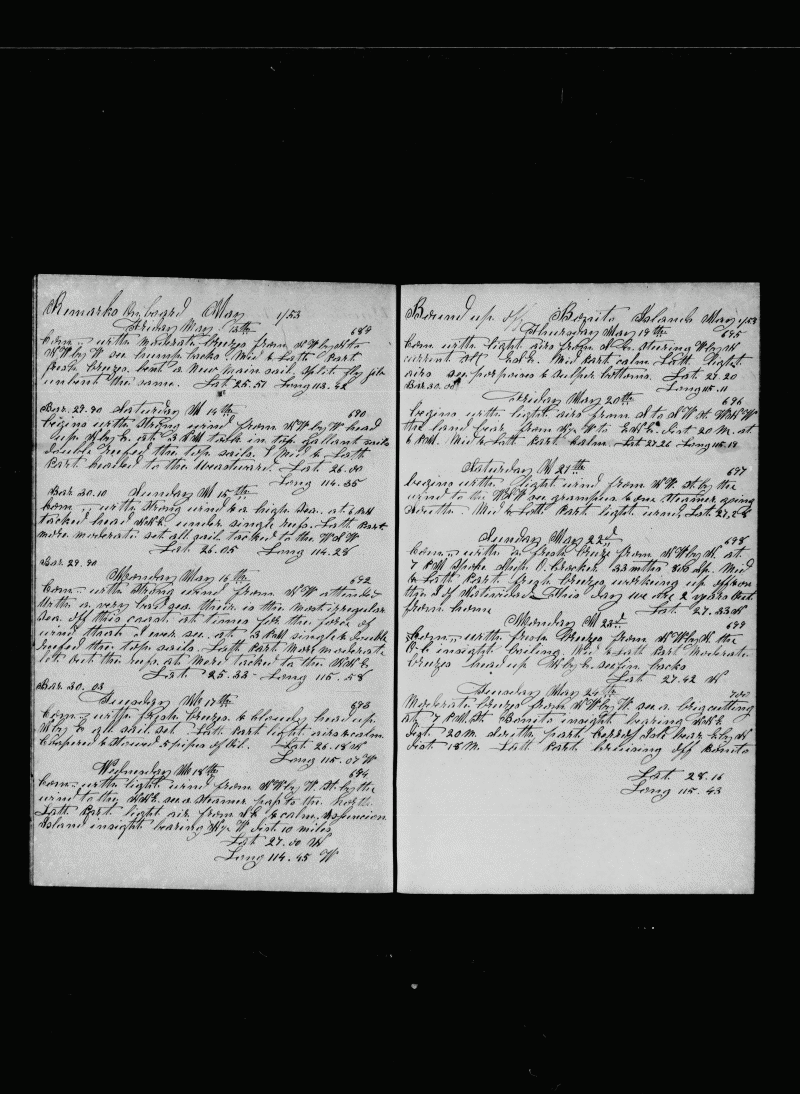 Remarks on board May 1/53
Friday May 13th 689
Com. with moderate breezes from
NW by W see hump backs Mid & Latt Part
fresh breezes bent a New main sail split fly jib
unbent the same. Lat 25.51 Long 113.42
Bar. 29.90 Saturday M 14th 690
begins with strong wind from NW by W head
up N by E. at 3 PM took in top gallant sails
double reefed the top sails. Mid & Latt
Part headed to the Westward. Lat 26.00
Long 114.35
Bar 30.10 Sunday M 15th
Com.. with strong wind & a high sea. at 6 PM
tacked head NNE under single reefs. Latt Part
more moderate set all sail tacked to the W
Lat 26.05 Long 114.28
Bar 29.90
Monday May 16th 692
Com.. with strong wind from NW attended
With a very bad sea. their is the most irregular
sea off this coast at times for the force of
wind that I ever see. at 3 PM single & double
reefed the top sails. Latt Part More moderate
let out the reefs at More tacked to the NNE
Lat 25.33 - Long 115.58
Bar. 30.03
Tuesday M 17th 693
Com.. with fresh breezes & cloudy head up
N by E all sail set Latt Part light airs & calm
Coopered & Stowed 5 pipes of Oil. Lat 26.18 N
Long 115.07 W
Wednesday M 18th 694
Com.. with light wind from NW by W. St by the
wind to the NNE see a Steamer pass to the North
Latt Part light air from & calm. Asencion
Island insight bearing W dist 10 miles
Lat 27.00 N
Long 114.45 W
Bound up off Bonito Islands May 1/53
Thursday May 19th 695
Com with light airs from steering W by N
current Mid Part calm Latt light
airs see porpoises & Sulpher bottoms. Lat 27.20
Bar 30.00 Long 115.11
Friday May 20th 696
begins with light airs from S to SW St
the land bear from to dist 20 M. at
6 PM. Mid & Latt Part calm. Lat 27.26 Long 115.18
Saturday M 21th 697
begins with light wind from NW. St by the
wind to the see grampus & one Steamer going
South. Mid & Latt Part light wind, Lat 27.28
Sunday May 22d 698
Com.. with a fresh breeze from NW by N at
7 PM Spoke Ship O. Crocker 33 mths 800 Sp. Mid
& Latt Part fresh breezes working up off on
the I of Natividad This day we are 2 years out
from home Lat 27.33 N
Monday M 23d 699
Com.. with fresh breezes from NW by N. the
O.C. insight boiling. Mid & Latt Part Moderate
breezes head up N by E. see fin backs
Lat 27.42 N
Tuesday May 24th 700
Moderate breezes from NW by W. see a brig cutting
At 7 PM St. Bonito insight bearing NNE
Dist 20 M. south part Cerros Isle bear E by N
Dist 18 M. Latt Part cruising off Bonito
Lat 28.16
Long 115.43